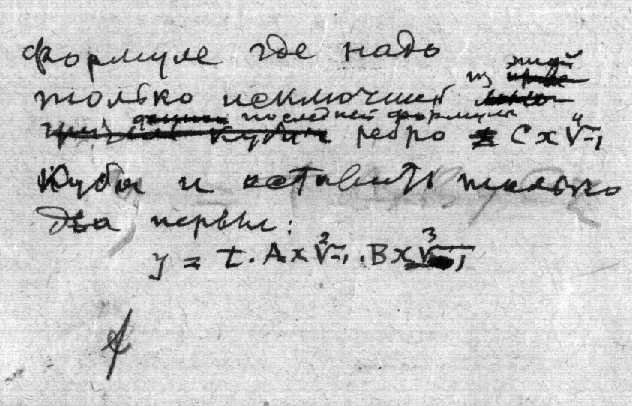 формуле где надо
только исключить из этой
данной последней формулы
ребро C x ∜-1
куба и оставить только
два первых:
y = t · A x ²√-1 · B x ³√-1